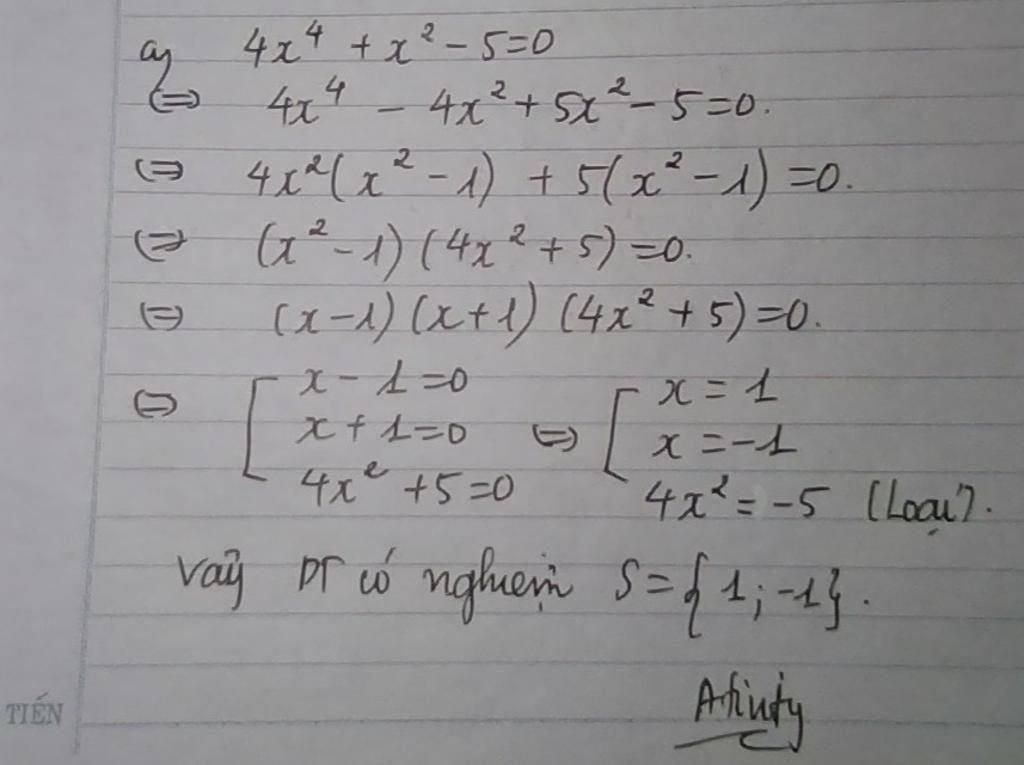 a) 4x⁴ + x² - 5 = 0
⇔ 4x⁴ - 4x² + 5x² - 5 = 0.
⇔ 4x²(x² - 1) + 5(x² - 1) = 0.
⇔ (x² - 1)(4x² + 5) = 0.
⇔ (x - 1)(x + 1)(4x² + 5) = 0.
⇔ [ x - 1 = 0 ⇔ [ x = 1
x + 1 = 0 x = -1
4x² + 5 = 0 4x² = -5 (Loại).
Vậy PT có nghiệm S = {1; -1}.
TIẾN